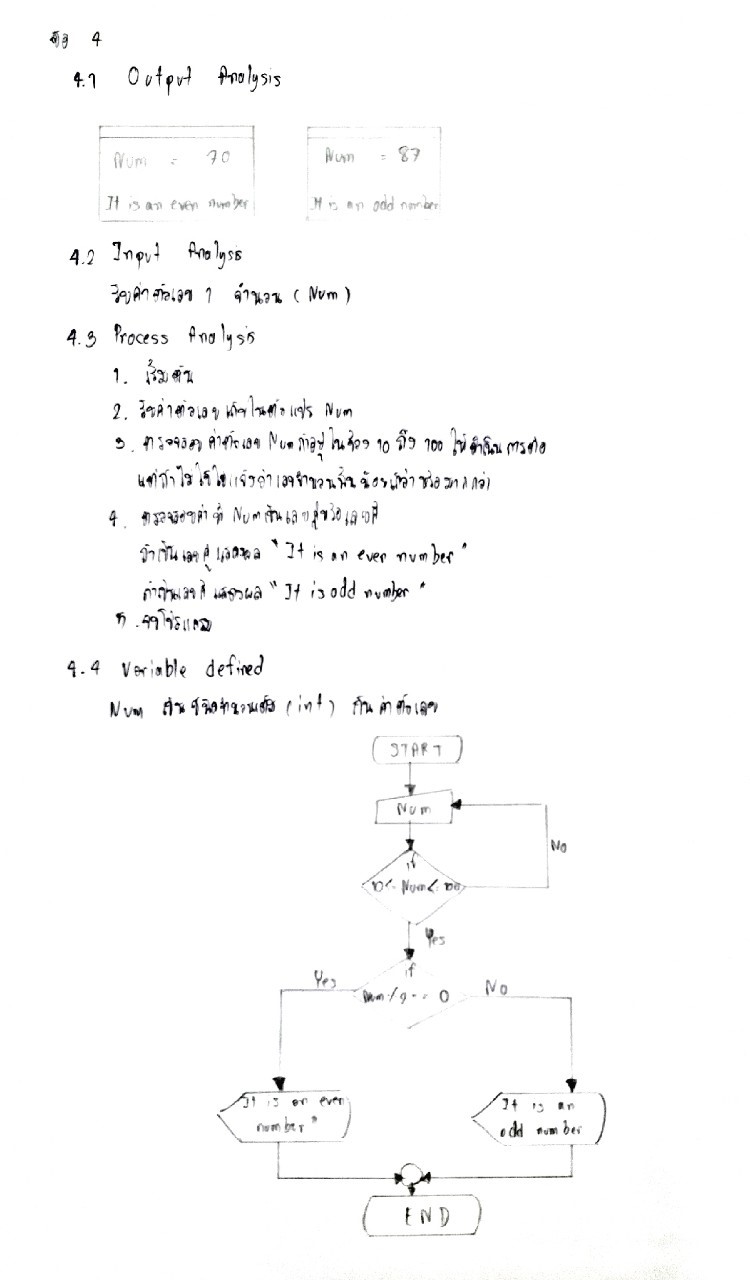 ข้อ 4
4.1 Output Analysis
Num = 70
It is an even number
Num = 87
It is an odd number
4.2 Input Analysis
รับค่าตัวเลข 1 จำนวน (Num)
4.3 Process Analysis
1. เริ่มต้น
2. รับค่าตัวเลขเก็บในตัวแปร Num
3. ตรวจสอบค่าตัวเลข Num ถ้าอยู่ในช่วง 10 ถึง 100 ให้ดำเนินการต่อ
แต่ถ้าไม่ใช่ให้แจ้งว่าเลขจำนวนนั้นน้อยกว่าหรือมากกว่า
4. ตรวจสอบค่า Num เป็นเลขคู่หรือเลขคี่
ถ้าเป็นเลขคู่ แสดงผล "It is an even number"
ถ้าเป็นเลขคี่ แสดงผล "It is odd number"
5. จบโปรแกรม
4.4 Variable defined
Num เป็นชนิดจำนวนเต็ม (int) เก็บค่าตัวเลข
START
Num
No
if
10 <= Num <= 100
Yes
if
Yes
No
It is an even
number"
It is an
odd number
END